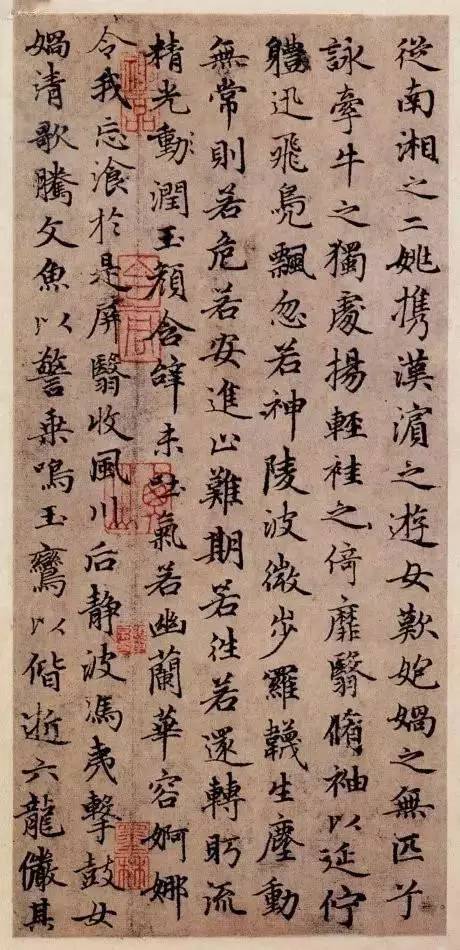 從南湘之二姚携漢濱之遊女歎媧之無匹兮
詠牽牛之獨處揚輕袿之倚靡翳脩袖以延佇
軆迅飛鳧飄忽若神陵波微步羅韈生塵動
無常則若危若安進止難期若往若還轉眄流
精光動潤玉顏含辝未吐氣若幽蘭華容婀娜
令我忘飡於是屏翳收風川后静波馮夷擊鼓女
媧清歌騰文魚以警乗鳴玉鸞以偕逝六龍儼其